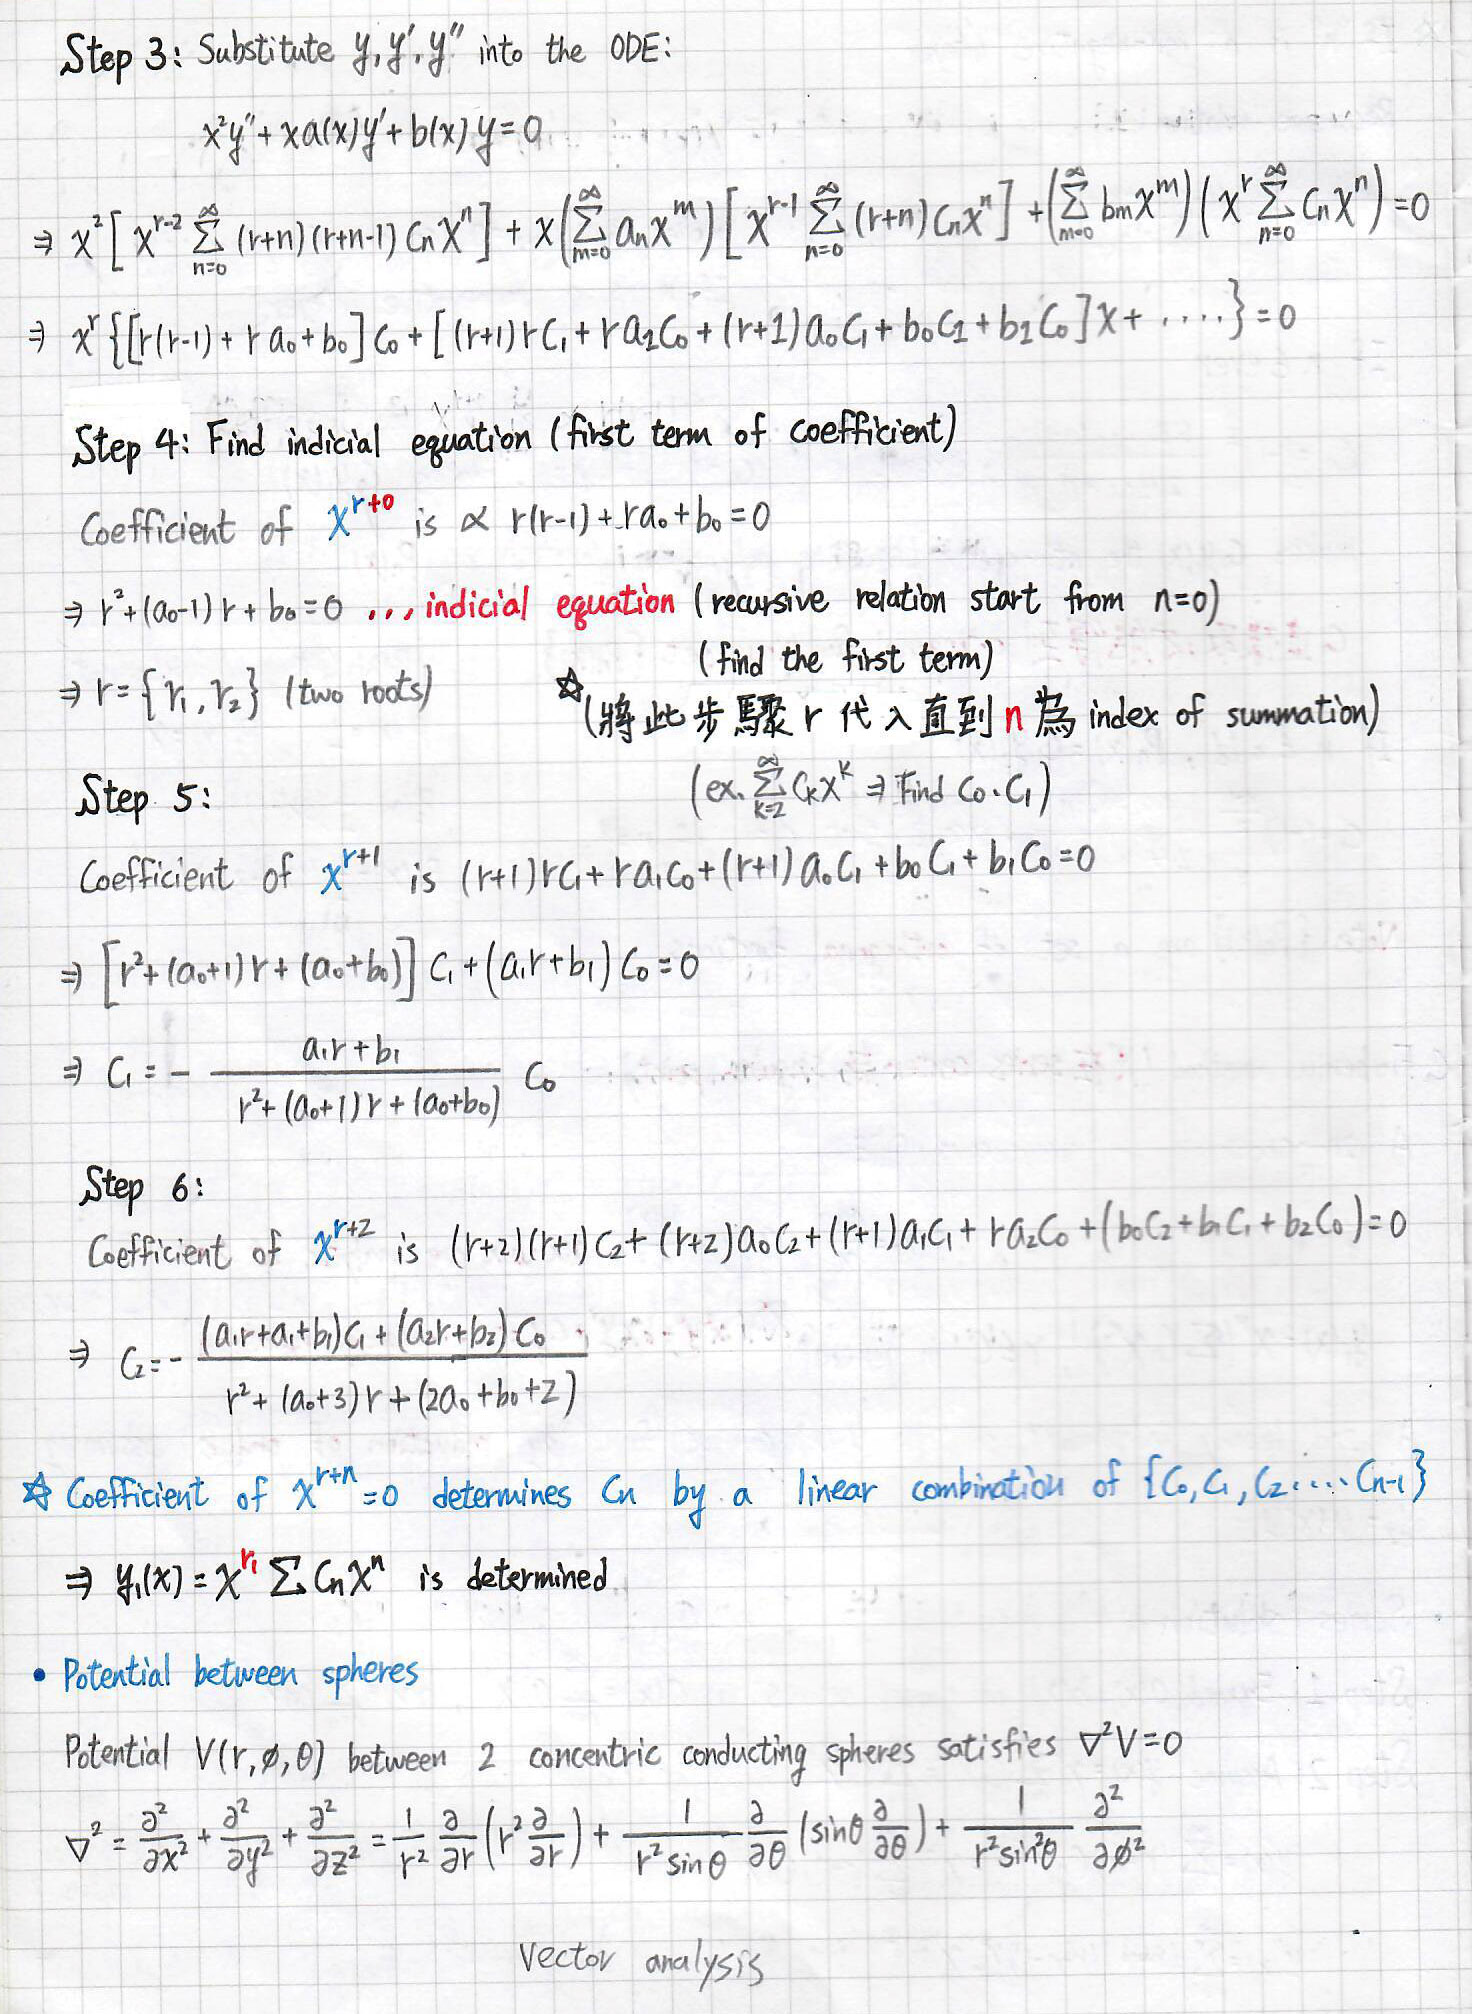 Step 3: Substitute y, y', y'' into the ODE:
x²y'' + xa(x)y' + b(x)y = 0
⇒ x² [ x^{r-2} ∑_{n=0}^{∞} (r+n)(r+n-1) Cₙxⁿ ] + x ( ∑_{m=0}^{∞} aₙx^m ) [ x^{r-1} ∑_{n=0}^{∞} (r+n) Cₙxⁿ ] + ( ∑_{m=0}^{∞} bₘx^m ) ( x^r ∑_{n=0}^{∞} Cₙxⁿ ) = 0
⇒ x^r { [r(r-1) + r a₀ + b₀] C₀ + [ (r+1) r C₁ + r a₁C₀ + (r+1) a₀C₁ + b₀C₁ + b₁C₀ ] x + ···· } = 0
Step 4: Find indicial equation (first term of coefficient)
Coefficient of x^{r+0} is ∝ r(r-1) + ra₀ + b₀ = 0
⇒ r² + (a₀-1) r + b₀ = 0 ... indicial equation (recursive relation start from n=0)
(find the first term)
⇒ r = {r₁, r₂} (two roots) ☆(將此步驟 r 代入直到 n 為 index of summation)
(ex. ∑_{k=2}^{∞} Cₖx^k ⇒ Find C₀、C₁)
Step 5:
Coefficient of x^{r+1} is (r+1)rC₁ + ra₁C₀ + (r+1) a₀C₁ + b₀C₁ + b₁C₀ = 0
⇒ [r² + (a₀+1) r + (a₀+b₀)] C₁ + (a₁r+b₁) C₀ = 0
⇒ C₁ = - \frac{a₁r + b₁}{r² + (a₀+1) r + (a₀+b₀)} C₀
Step 6:
Coefficient of x^{r+2} is (r+2)(r+1) C₂ + (r+2) a₀C₂ + (r+1) a₁C₁ + ra₂C₀ + (b₀C₂ + b₁C₁ + b₂C₀) = 0
⇒ C₂ = - \frac{(a₁r+a₁+b₁)C₁ + (a₂r+b₂) C₀}{r² + (a₀+3) r + (2a₀+b₀+2)}
☆ Coefficient of x^{r+n} = 0 determines Cₙ by a linear combination of {C₀, C₁, C₂.... Cₙ₋₁}
⇒ y₁(x) = x^{r₁} ∑ Cₙxⁿ is determined
• Potential between spheres
Potential V(r, ø, θ) between 2 concentric conducting spheres satisfies ∇²V = 0
∇² = \frac{∂²}{∂x²} + \frac{∂²}{∂y²} + \frac{∂²}{∂z²} = \frac{1}{r²} \frac{∂}{∂r} (r² \frac{∂}{∂r}) + \frac{1}{r² sinθ} \frac{∂}{∂θ} (sinθ \frac{∂}{∂θ}) + \frac{1}{r² sin²θ} \frac{∂²}{∂ø²}
Vector analysis